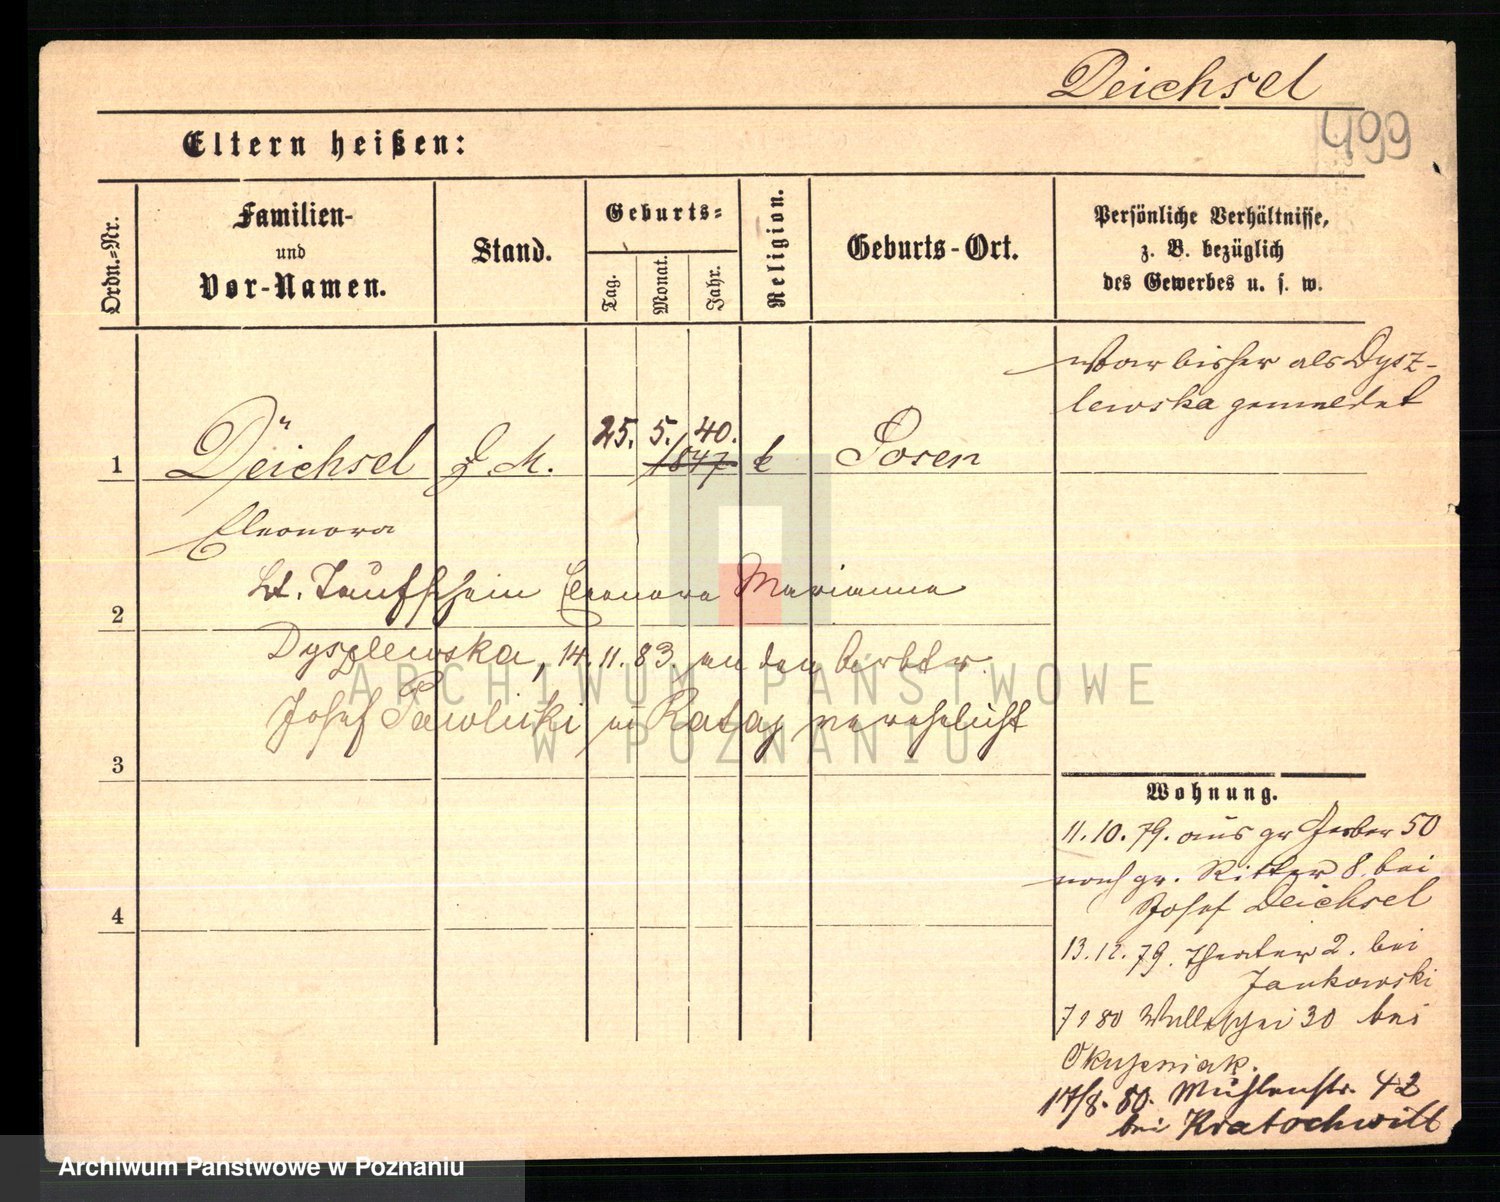 Deichsel
499
Eltern heißen:
Ordn.=Nr.
Familien-
und
Vor-Namen.
Stand.
Geburts=
Tag.
Monat.
Jahr.
Religion.
Geburts-Ort.
Persönliche Verhältnisse,
z. B. bezüglich
des Gewerbes u. s. w.
War bisher als Dysz-
lewska gemeldet
1
Deichsel
D. M.
25. 5. 40.
1847
k
Posen
Eleonora
Lt. Taufschein Eleonora Marianna
2
Dyszlewska, 14.11.83. an den
Josef Pawlicki in Rataj verehelicht
3
4
Wohnung.
11.10.79. aus gr Gerber 50
nach gr. Ritter 8. bei
Josef Deichsel
13.12.79. Theater 2. bei
Jankowski
7 1 80 Wallischei 30 bei
17/8. 80. Mühlenstr. 42
bei Kratochwill
ARCHIWUM PAŃSTWOWE
W POZNANIU
Archiwum Państwowe w Poznaniu